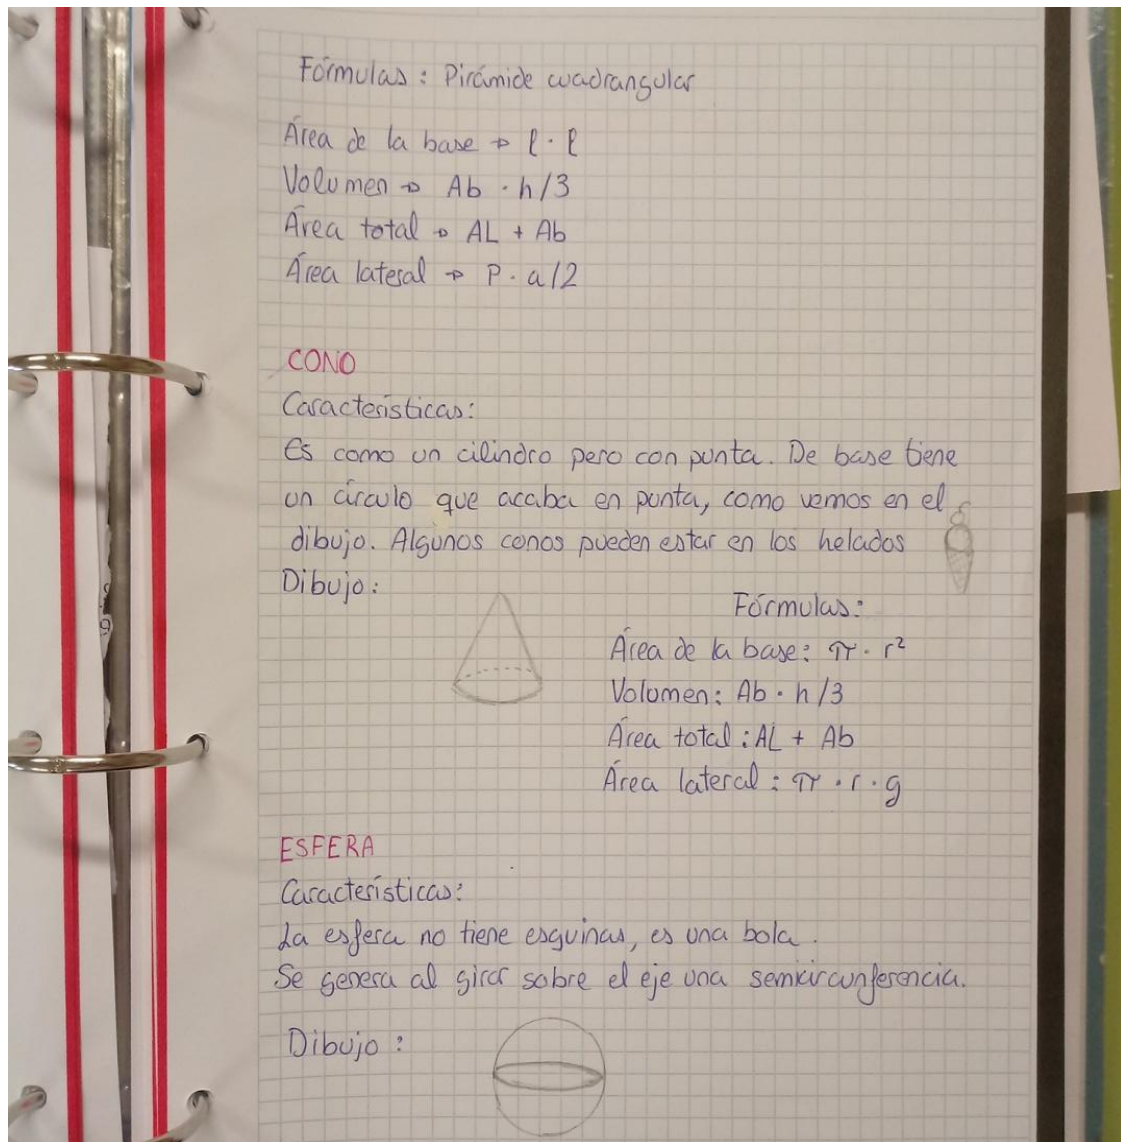 Fórmulas: Pirámide cuadrangular
Área de la base → l · l
Volumen → Ab · h/3
Área total → AL + Ab
Área lateral → P · a/2
CONO
Características:
Es como un cilindro pero con punta. De base tiene
un círculo que acaba en punta, como vemos en el
dibujo. Algunos conos pueden estar en los helados
Dibujo:
Fórmulas:
Área de la base: π · r²
Volumen: Ab · h/3
Área total: AL + Ab
Área lateral: π · r · g
ESFERA
Características:
La esfera no tiene esquinas, es una bola.
Se genera al girar sobre el eje una semicircunferencia.
Dibujo: